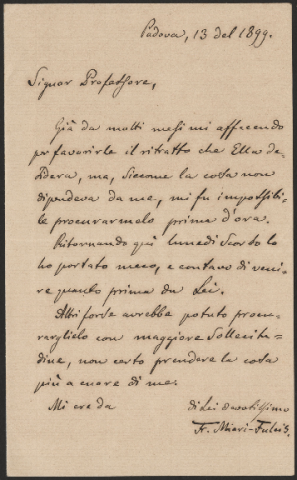 Padova, 13 del 1899.
Signor Professore,
Già da molti mesi mi affaccendo
per favorirle il ritratto che Ella de-
sidera, ma, siccome la cosa non
dipendeva da me, mi fu impossibi-
le procurarmelo prima d'ora.
Ritornando quì lunedì scorso lo
ho portato meco, e contavo di veni-
re quanto prima da Lei.
Altri forse avrebbe potuto procu-
rarglielo con maggiore sollecitu-
dine, non certo prendere la cosa
più a cuore di me.
Mi creda
di Lei devotissimo
Fr. Miari-Fulcis.